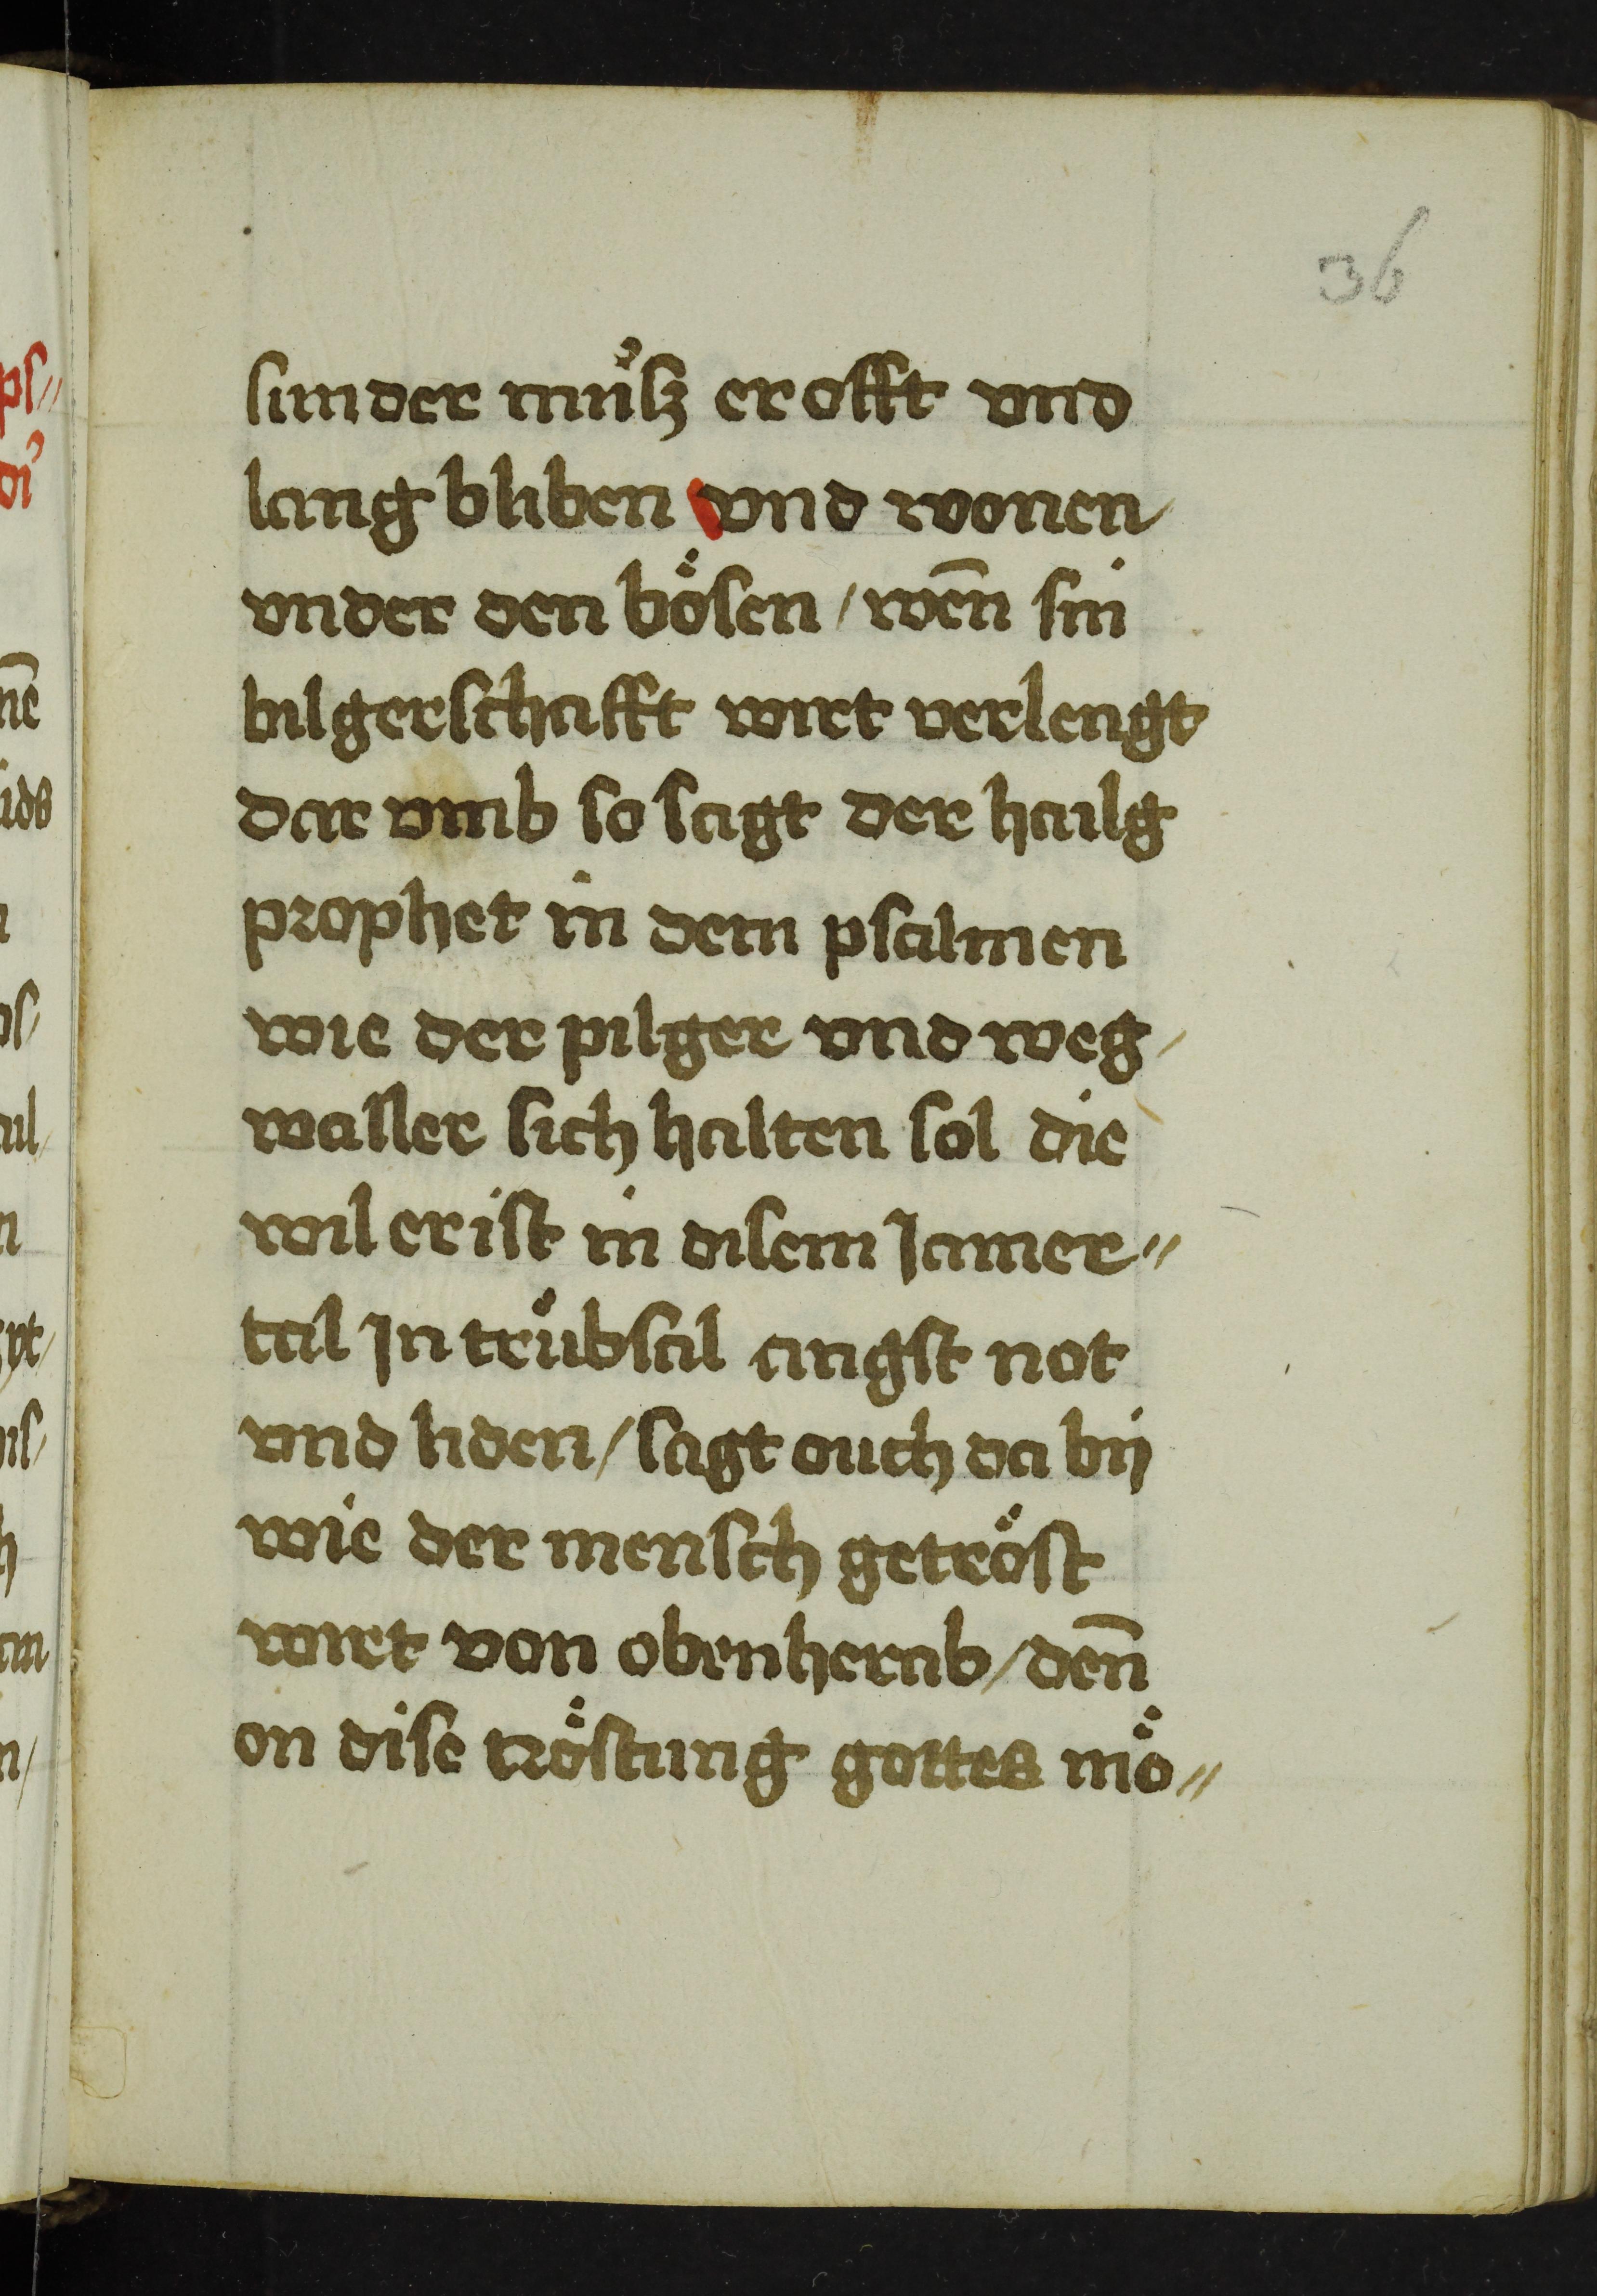 36
sunder muͦſz er offt vnd
lang bliben vnd wonen
vnder den böſen / wen̄ ſin
bilgerſchafft wirt verlengt
dar vmb ſo ſagt der hailg
prophet in dem pſalmen
wie der pilger vnd weg /
waller ſich halten ſol die
wil er iſt in diſem Jamer //
tal Jn trübſal angſt not
vnd liden / ſagt ouch da bij
wie der menſch getröſt
wirt von obenherab / den̄
on diſe tröſtung gottes mö //